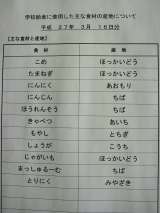 学校給食に使用した主な食材の産地について
平成 27年 3月 16日分
【主な食材と産地】
食材 産地
こめ ほっかいどう
たまねぎ ほっかいどう
にんにく あおもり
にんじん ちば
ほうれんそう ちば
きゃべつ あいち
もやし とちぎ
しょうが こうち
じゃがいも ほっかいどう
まっしゅるーむ ちば
とりにく みやざき